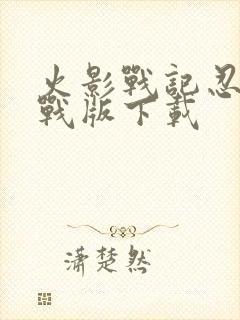 火影戰記忍
戰版下載
潇楚然